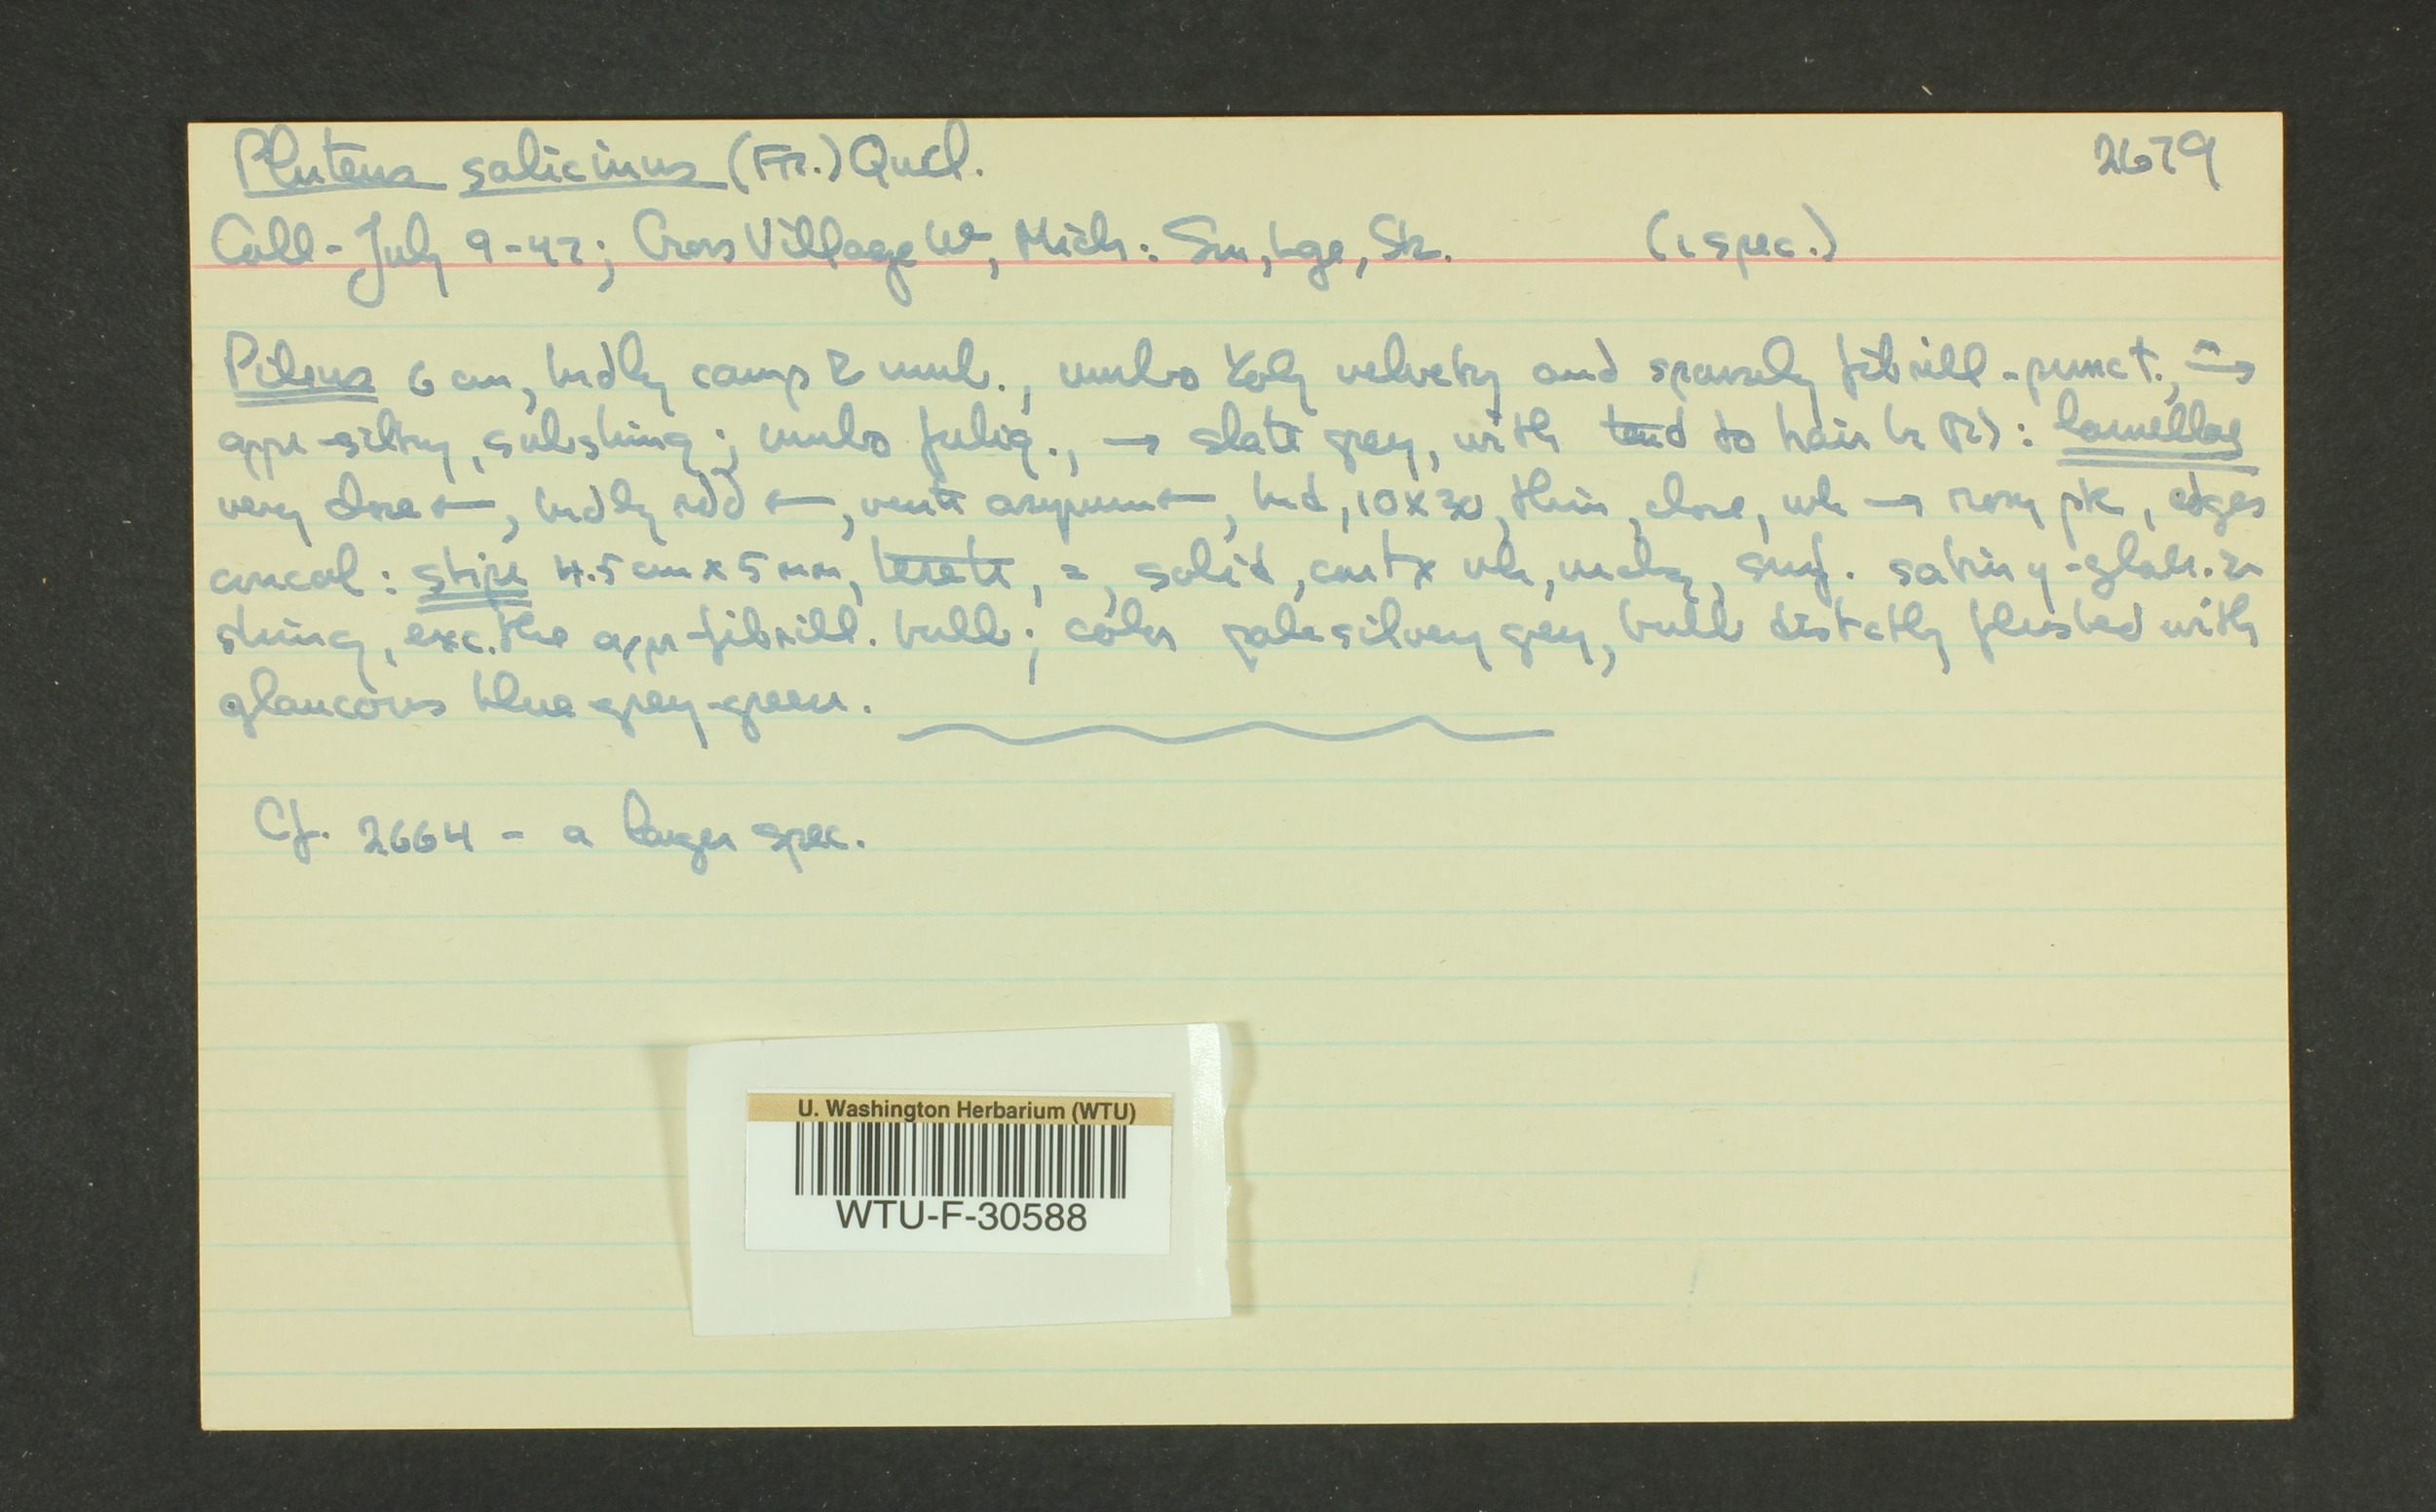 Pluteus salicinus (Fr.) Quél. 2679
Coll - July 9-47; Cross Village W, Mich: Sm, (1 spec.)
Pileus 6 cm, brdly camp umb., umbo velvety and sparsely fibrill-punct.,
appr-silky, subshiny; umbo fulig., → slate grey, with tend to hair: lamellae
very close ←, brdly rdd ←, brd, 10 x 30, thin, close, wh → rosy pk, edges
concol: stipe 4.5 cm x 5 mm, terete, =, solid, cortx wh, surf. satiny-glab.
shiny, exc. the appr-fibrill. bulb; color pale silvery grey, bulb distctly flushed with
glaucous blue grey-green.
Cf. 2664 - a larger spec.
U. Washington Herbarium (WTU)
WTU-F-30588